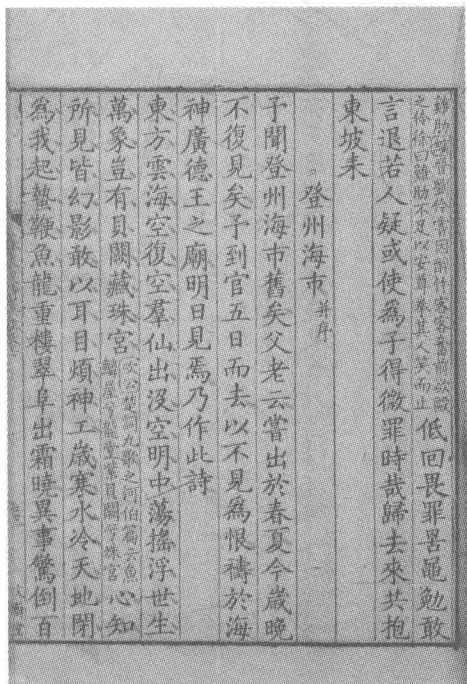 雞肋晉劉伶嘗因酣忤客客奮前欲毆
之伶徐曰雞肋不足以安尊拳其人笑而止
低回畏罪罟黽勉敢
言退若人疑或使爲子得微罪時哉歸去來共抱
東坡耒
登州海市 并序
予聞登州海市舊矣父老云嘗出於春夏今歲晚
不復見矣予到官五日而去以不見爲恨禱於海
神廣德王之廟明日見焉乃作此詩
東方雲海空復空羣仙出沒空明中蕩搖浮世生
萬象豈有貝闕藏珠宮
次公楚詞九歌之河伯篇云魚
鱗屋兮龍堂紫貝闕兮珠宮
心知
所見皆幻影敢以耳目煩神工歲寒水冷天地閉
爲我起蟄鞭魚龍重樓翠阜出霜曉異事驚倒百